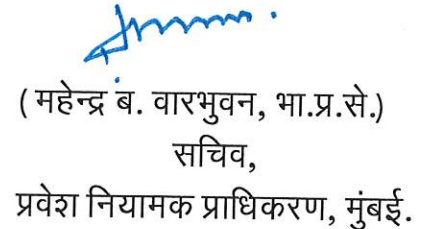 ( महेन्द्र ब. वारभुवन, भा.प्र.से.)
सचिव,
प्रवेश नियामक प्राधिकरण, मुंबई.